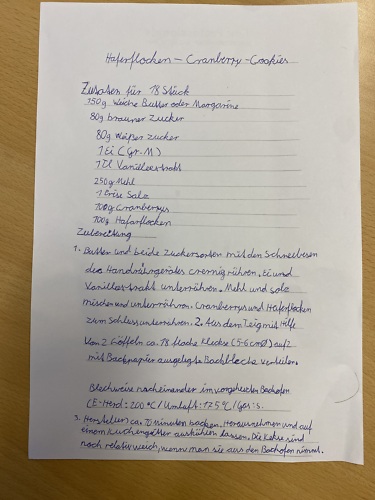 Haferflocken - Cranberry - Cookies
Zutaten für 18 Stück
150g weiche Butter oder Margarine
80g brauner Zucker
80g weißer Zucker
1 Ei (Gr. M)
1 Tl Vanilleextrakt
250g Mehl
1 Prise Salz
100g Cranberrys
100g Haferflocken
Zubereitung
1. Butter und beide Zuckersorten mit den Schneebesen
des Handrührgerätes cremig rühren. Ei und
Vanilleextrakt unterrühren. Mehl und Salz
mischen und unterrühren. Cranberrys und Haferflocken
zum Schluss unterrühren. 2. Aus dem Teig mit Hilfe
von 2 Löffeln ca. 18 flache Kleckse (5-6 cm Ø) auf 2
mit Backpapier ausgelegte Backbleche verteilen.
Blechweise nacheinander im vorgeheizten Backofen
(E-Herd: 200°C / Umluft: 175°C / Gas: s.
3. Hersteller) ca. 10 minuten backen. Herausnehmen und auf
einem Kuchengitter auskühlen lassen. Die Kekse sind
noch relativ weich, wenn man sie aus den Backofen nimmt.